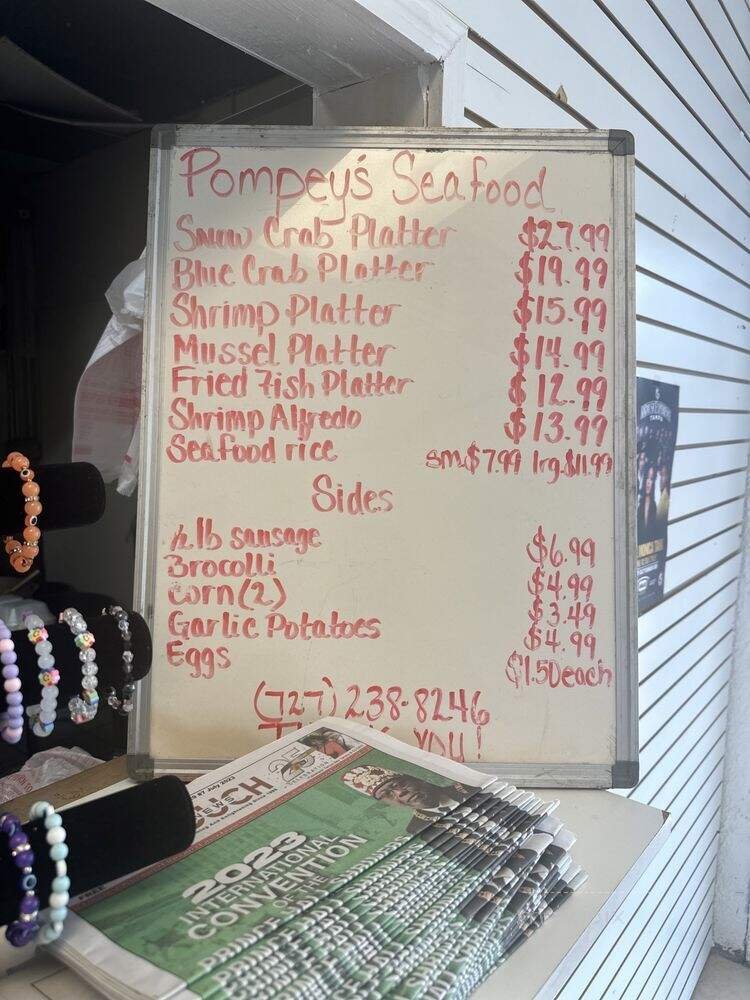 Pompey's Seafood
Snow Crab Platter $27.99
Blue Crab Platter $19.99
Shrimp Platter $15.99
Mussel Platter $14.99
Fried Fish Platter $12.99
Shrimp Alfredo $13.99
Seafood rice sm.$7.99 lrg.$11.99
Sides
1/2 lb sausage $6.99
Brocolli $4.99
corn (2) $3.49
Garlic Potatoes $4.99
Eggs $1.50 each
(727) 238-8246
YOU!
25
NEWS
FREE
2023
INTERNATIONAL
CONVENTION
OF THE